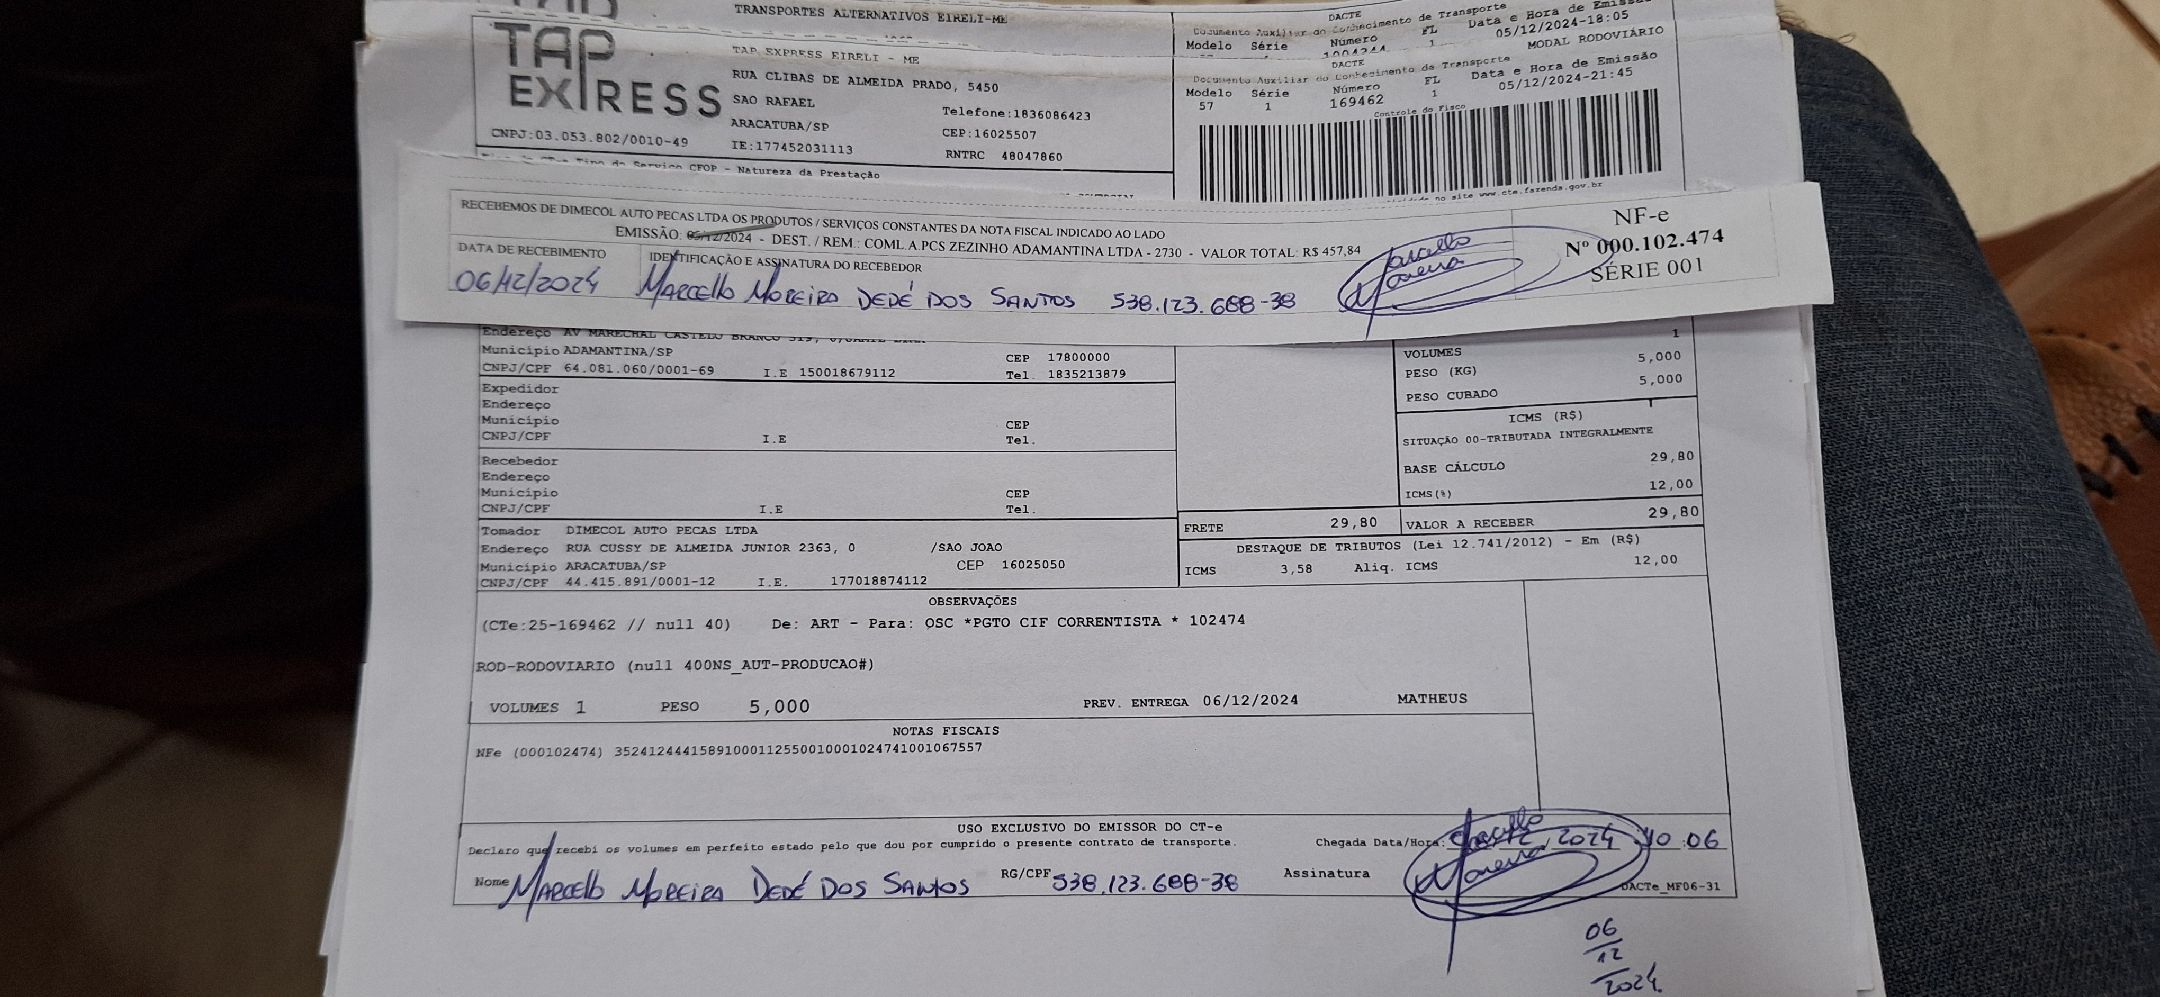 TRANSPORTES ALTERNATIVOS EIRELI-ME
DACTE
Documento Auxiliar do Conhecimento de Transporte
Modelo Série Número FL Data e Hora de Emissão
1004244 1 05/12/2024-18:05
MODAL RODOVIÁRIO
TAP EXPRESS
TAP EXPRESS EIRELI - ME
RUA CLIBAS DE ALMEIDA PRADO, 5450
SAO RAFAEL
Telefone:1836086423
ARACATUBA/SP
CEP:16025507
CNPJ:03.053.802/0010-49
IE:177452031113
RNTRC 48047860
DACTE
Documento Auxiliar do Conhecimento de Transporte
Modelo Série Número FL Data e Hora de Emissão
57 1 169462 1 05/12/2024-21:45
Controle do Fisco
Tipo do Serviço CFOP - Natureza da Prestação
no site www.cte.fazenda.gov.br
RECEBEMOS DE DIMECOL AUTO PECAS LTDA OS PRODUTOS / SERVIÇOS CONSTANTES DA NOTA FISCAL INDICADO AO LADO
EMISSÃO: 05/12/2024 - DEST. / REM.: COML.A PCS ZEZINHO ADAMANTINA LTDA - 2730 - VALOR TOTAL: R$ 457,84
DATA DE RECEBIMENTO IDENTIFICAÇÃO E ASSINATURA DO RECEBEDOR
06/12/2024 MARCELLO MOREIRA DEDÉ DOS SANTOS 538.123.688-38
Marcello
Moreira
NF-e
Nº 000.102.474
SÉRIE 001
Endereço AV MARECHAL CASTELO BRANCO
Município ADAMANTINA/SP CEP 17800000
CNPJ/CPF 64.081.060/0001-69 I.E 150018679112 Tel. 1835213879
Expedidor
Endereço
Município CEP
CNPJ/CPF I.E Tel.
Recebedor
Endereço
Município CEP
CNPJ/CPF I.E Tel.
Tomador DIMECOL AUTO PECAS LTDA
Endereço RUA CUSSY DE ALMEIDA JUNIOR 2363, 0 /SAO JOAO
Município ARACATUBA/SP CEP 16025050
CNPJ/CPF 44.415.891/0001-12 I.E. 177018874112
VOLUMES 1
PESO (KG) 5,000
PESO CUBADO 5,000
ICMS (R$)
SITUAÇÃO 00-TRIBUTADA INTEGRALMENTE
BASE CÁLCULO 29,80
ICMS(%) 12,00
FRETE 29,80 VALOR A RECEBER 29,80
DESTAQUE DE TRIBUTOS (Lei 12.741/2012) - Em (R$)
ICMS 3,58 Aliq. ICMS 12,00
OBSERVAÇÕES
(CTe:25-169462 // null 40) De: ART - Para: OSC *PGTO CIF CORRENTISTA * 102474
ROD-RODOVIARIO (null 400NS_AUT-PRODUCAO#)
VOLUMES 1 PESO 5,000 PREV. ENTREGA 06/12/2024 MATHEUS
NOTAS FISCAIS
NFe (000102474) 35241244415891000112550010001024741001067557
USO EXCLUSIVO DO EMISSOR DO CT-e
Declaro que recebi os volumes em perfeito estado pelo que dou por cumprido o presente contrato de transporte.
Chegada Data/Hora: 12 2024 10:06
Nome MARCELLO MOREIRA DEDÉ DOS SANTOS RG/CPF 538.123.688-38 Assinatura Marcello
Moreira
DACTe_MF06-31
06
12
2024